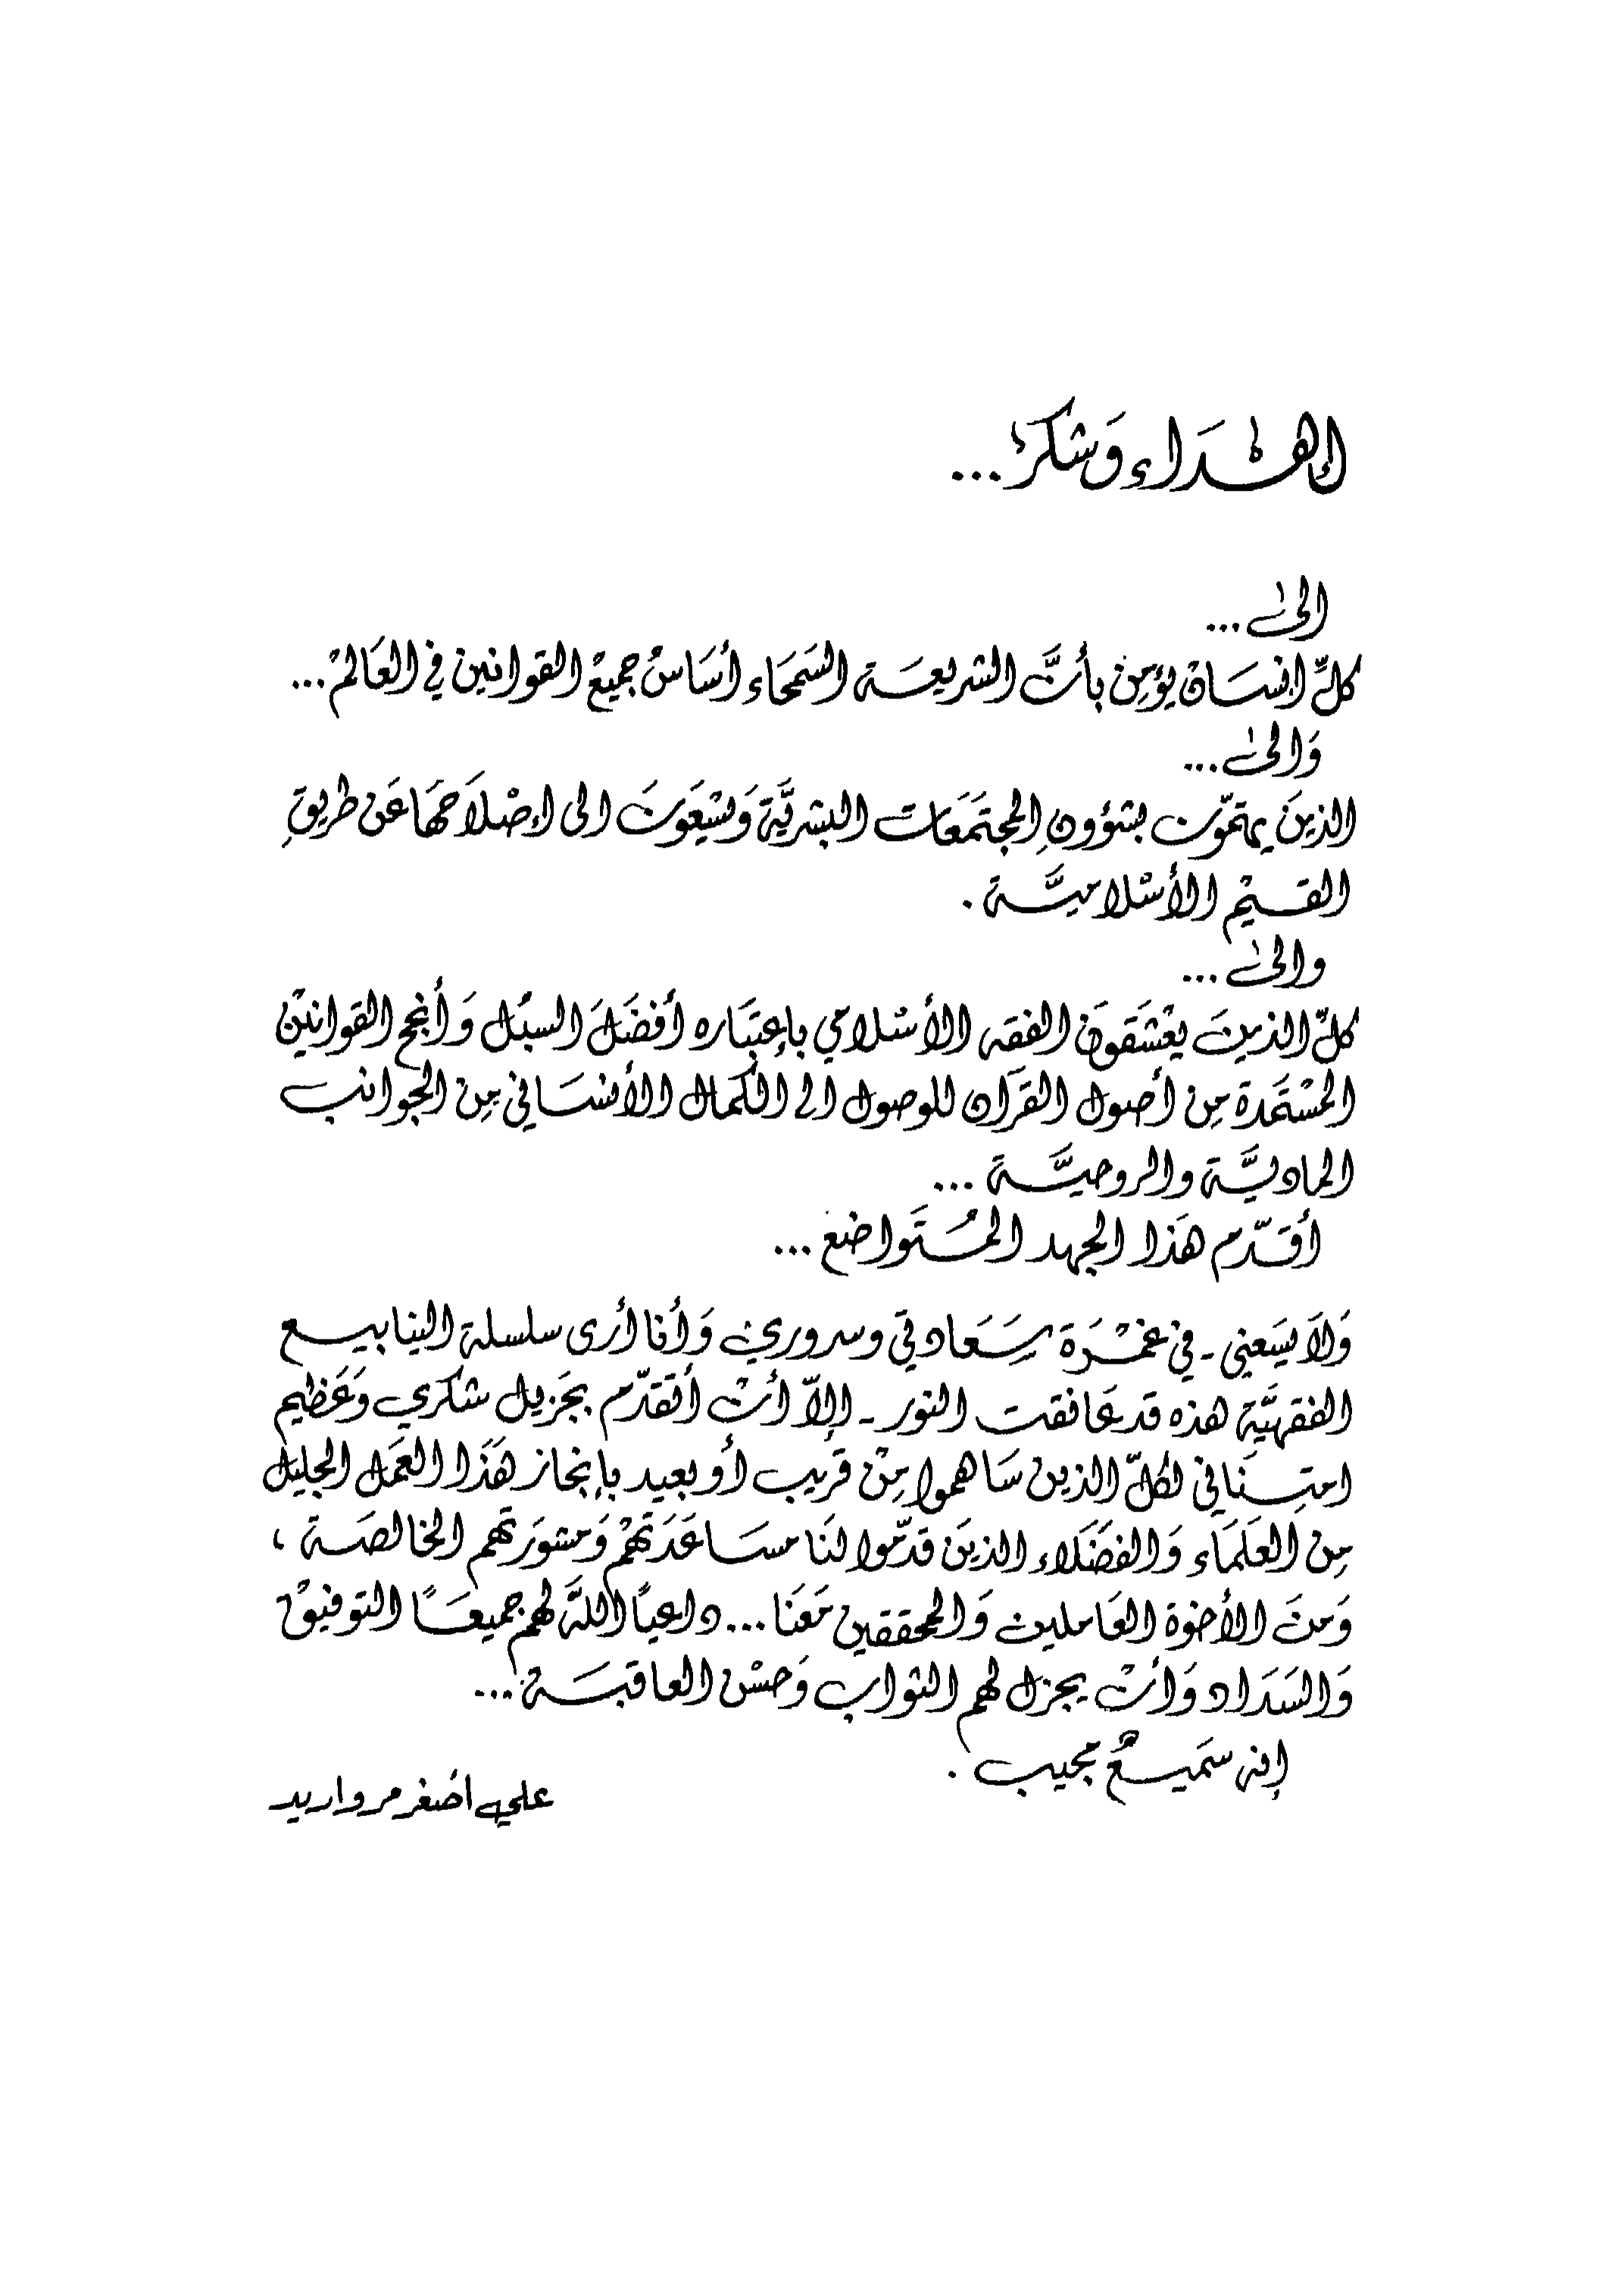 إهداء وشكر...
الى...
كلّ إنسان يؤمن بأنَّ الشريعة السَمحَاء أسَاسُ جميعْ القوانين في العَالمْ...
وَالى...
الذينَ يهتمّون بشؤونِ المجتَمَعَات البشريَّة وَيسْيعَونَ الى إصْلاَحهَا عَن طريقِ
القيْم الأسْلاميَّة .
والى...
كلّ الذينَ يعْشَقَونَ الفقه الأسْلامي بإعتبَاره أفضَلَ السبُل وَأنجح القوانيْن
المسْتَمدة مِن أصول القرَآن للوصول الى الكمال الأنسَاني مِن الجوانب
الماديَّة والروحيَّة ...
أقدّم هَذا الجهد المُتَواضع ...
وَلاَ يسَعني - في غمْرَة سَعَادتي وسروري وَأنا أرى سلسلة الينابيع
الفقهيَّة هذه قد عَانقت النور - إلاّ أنْ أتقدّم بجَزيل شكري وَعَظيم
امتِنَاني لكلّ الذين سَاهموا مِنْ قريب أو بعيد بإنجاز هَذَا العَمَل الجليل
مِن العَلَمَاء وَالفضَلاء الذينَ قدّموا لنَا مسَاعَدَتهمْ وَمشورَتهم الخالصَة ،
وَمنَ الأخوة العَاملين وَالمحققين مَعَنَا ... داعياً اللهَ لهم جميعَاً التوفيقْ
وَالسَدَاد وَأنْ يجزل لهم الثواب وَحسْن العاقبَة ...
إنه سمَيعٌ مجيب .
علي أصْغر مرواريد